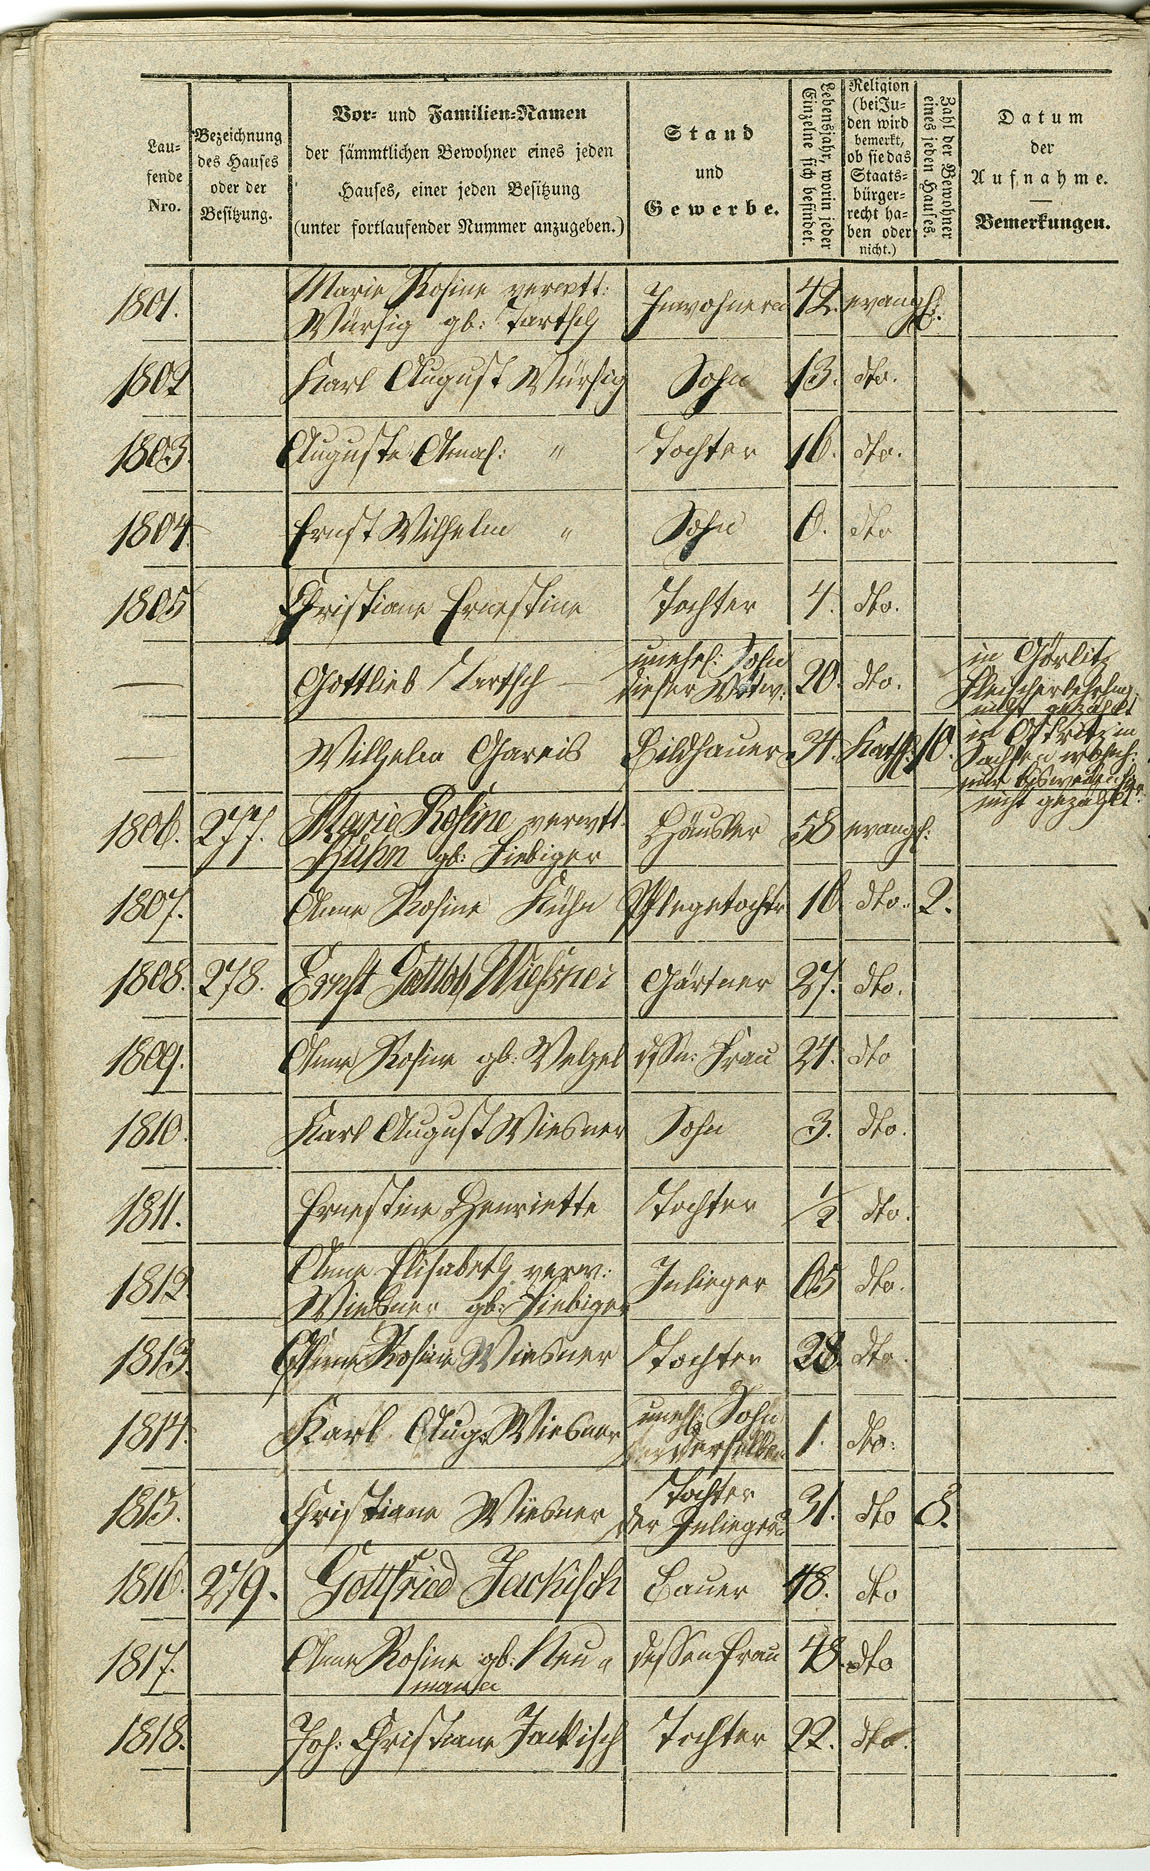 Lau-
fende
Nro.
Bezeichnung
des Hauses
oder der
Besitzung.
Vor- und Familien-Namen
der sämmtlichen Bewohner eines jeden
Hauses, einer jeden Besitzung
(unter fortlaufender Nummer anzugeben.)
Stand
und
Gewerbe.
Lebensjahr, worin jeder
Einzelne sich befindet.
Religion
(bei Ju-
den wird
bemerkt,
ob sie das
Staats-
bürger-
recht ha-
ben oder
nicht.)
Zahl der Bewohner
eines jeden Hauses.
Datum
der
Aufnahme.
Bemerkungen.
1801. Marie Rosine verwtt: Inwohnerin 42. evangl:
Würsig gb: Tartsch
1802 Karl August Würsig Sohn 13. dto.
1803. Auguste Amal: " Tochter 16. dto.
1804. Ernst Wilhelm " Sohn 6. dto
1805 Christiane Ernestine Tochter 4. dto.
— Gottlieb Tartsch — unehel: Sohn 20. dto. in Görlitz
dieser Wittw: Fleischerlehrling
nicht gezählt
— Wilhelm Gareis Bildhauer 34. Kath: 10. in Ostritz in
Sachsen
nur bisweilen hier
nicht gezählt.
1806. 277. Marie Rosine verwtt. Häusler 58 evangl:
Kuhn gb: Fiebiger
1807. Anne Rosine Kühn Pflegetochtr 16 dto. 2.
1808. 278. Ernst Gottlob Wiessner Gärtner 27. dto.
1809. Anne Rosine gb: Welzel dssn: Frau 24. dto
1810. Karl August Wiesner Sohn 3. dto.
1811. Ernestine Henriette Tochter 1/2 dto.
1812 Anne Elisabeth verw: Inlieger 65 dto.
Wiesner gb: Fiebiger
1813. Anne Rosine Wiesner Tochter 28. dto.
1814. Karl Aug. Wiesner unehl: Sohn 1. dto:
derselben
1815. Christiane Wiesner Tochter 31. dto 8.
der Inliegerin
1816. 279. Gottfried Jackisch Bauer 48. dto
1817. Anne Rosine gb: Neu= dessen Frau 48. dto
mann
1818. Joh: Christiane Jackisch Tochter 22. dto.